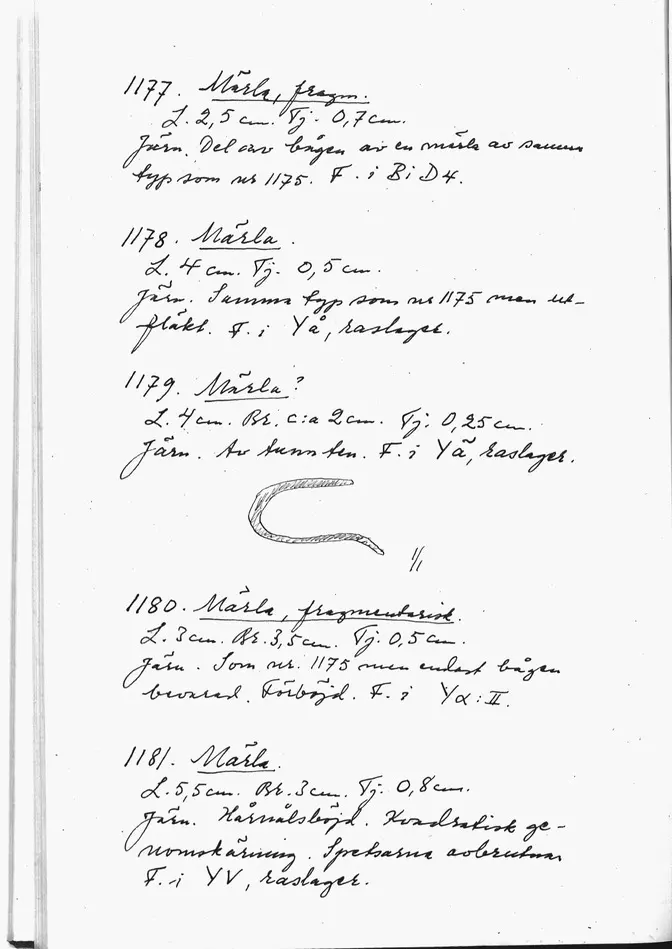 1177. Märla, fragm.
L. 2,5 cm. Tj. 0,7 cm.
Järn. Del av bågen av en märla av samma
typ som nr 1175. F. i B i D4.
1178. Märla.
L. 4 cm. Tj. 0,5 cm.
Järn. Samma typ som nr 1175 men ut-
fläkt. F. i YÅ, raslager.
1179. Märla?
L. 4 cm. Br. c:a 2 cm. Tj. 0,25 cm.
Järn. Av tunn ten. F. i YÄ, raslager.
1/1
1180. Märla, fragmentarisk.
L. 3 cm. Br. 3,5 cm. Tj. 0,5 cm.
Järn. Som nr. 1175 men endast bågen
bevarad. Förböjd. F. i Yα:II.
1181. Märla.
L. 5,5 cm. Br. 3 cm. Tj. 0,8 cm.
Järn. Hårnålsböjd. Kvadratisk ge-
nomskärning. Spetsarna avbrutna
F. i YV, raslager.